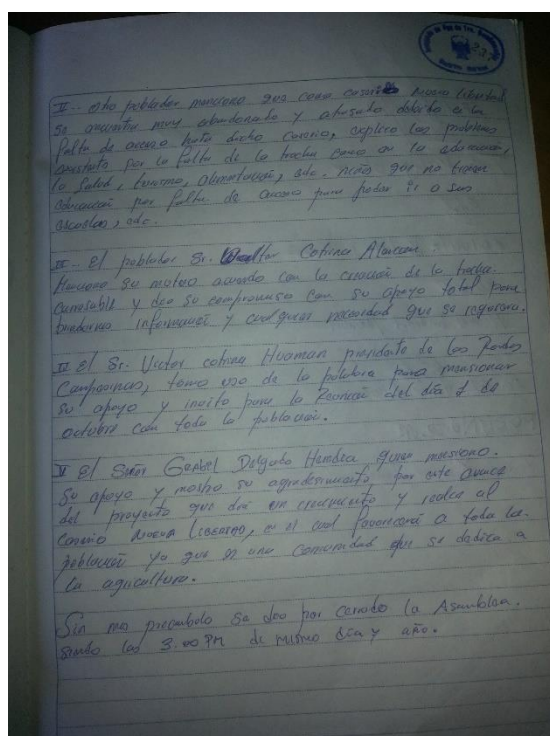 II.- Otro poblador menciono que como caserio Nueva Libertad
se encuentra muy abandonado y atrasado debido a la
falta de acceso hasta dicho caserio, explico los problemas
por la falta de la trocha como en la educación,
la salud, turismo, alimentación, etc. niños que no tienen
educación por falta de acceso para poder ir a sus
escuelas, etc.
El poblador Sr. Walter Cotrina Alarcon
Menciono su mutuo acuerdo con la creación de la trocha
carrosable y dio su compromiso con su apoyo total para
brindarnos información y cualquier necesidad que se requiera.
El Sr. Victor cotrina Huaman presidente de las Rondas
Campesinas, toma uso de la palabra para mensionar
su apoyo y invito para la Reunión del día 1 de
octubre con toda la población.
V El Señor Gabriel Delgado Herrera quien mensiono.
Su apoyo y mostro su agradesimiento por este avance
del proyecto que drá un crecimiento y realce al
Caserio NUEVA LIBERTAD, en el cual favorecerá a toda la
población ya que es una Comunidad que se dedica a
la agricultura.
Sin mas preambulo se dio por cerrado la Asamblea.
siendo las 3:00 PM de mismo día y año.